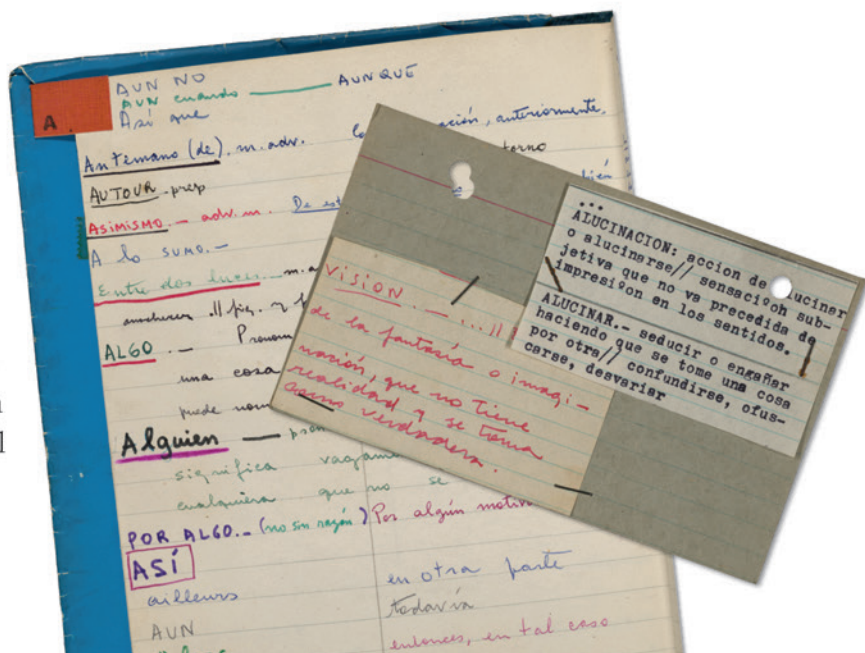 A.
AUN NO
AUN cuando — AUNQUE
Así que
Antemano (de). m. adv. anteriormente.
AUTOUR - prep torno
ASIMISMO.- adv. m. De
A lo SUMO.-
Entre dos luces.-
anochecer. // fig. y
ALGO.-
una cosa
puede
Alguien —
significa
cualquiera que no se
POR ALGO.- (no sin razón) Por algún
ASÍ
ailleurs en otra parte
AUN todavía
entonces, en tal caso
VISION.- ... //
de la fantasía o imagi-
nación, que no tiene
realidad y se toma
como verdadera.
...
ALUCINACION: accion de
o alucinarse// sub-
jetiva que no va precedida de
en los sentidos.
ALUCINAR.- seducir o engañar
haciendo que se tome una cosa
por otra// confundirse, ofus-
carse, desvariar